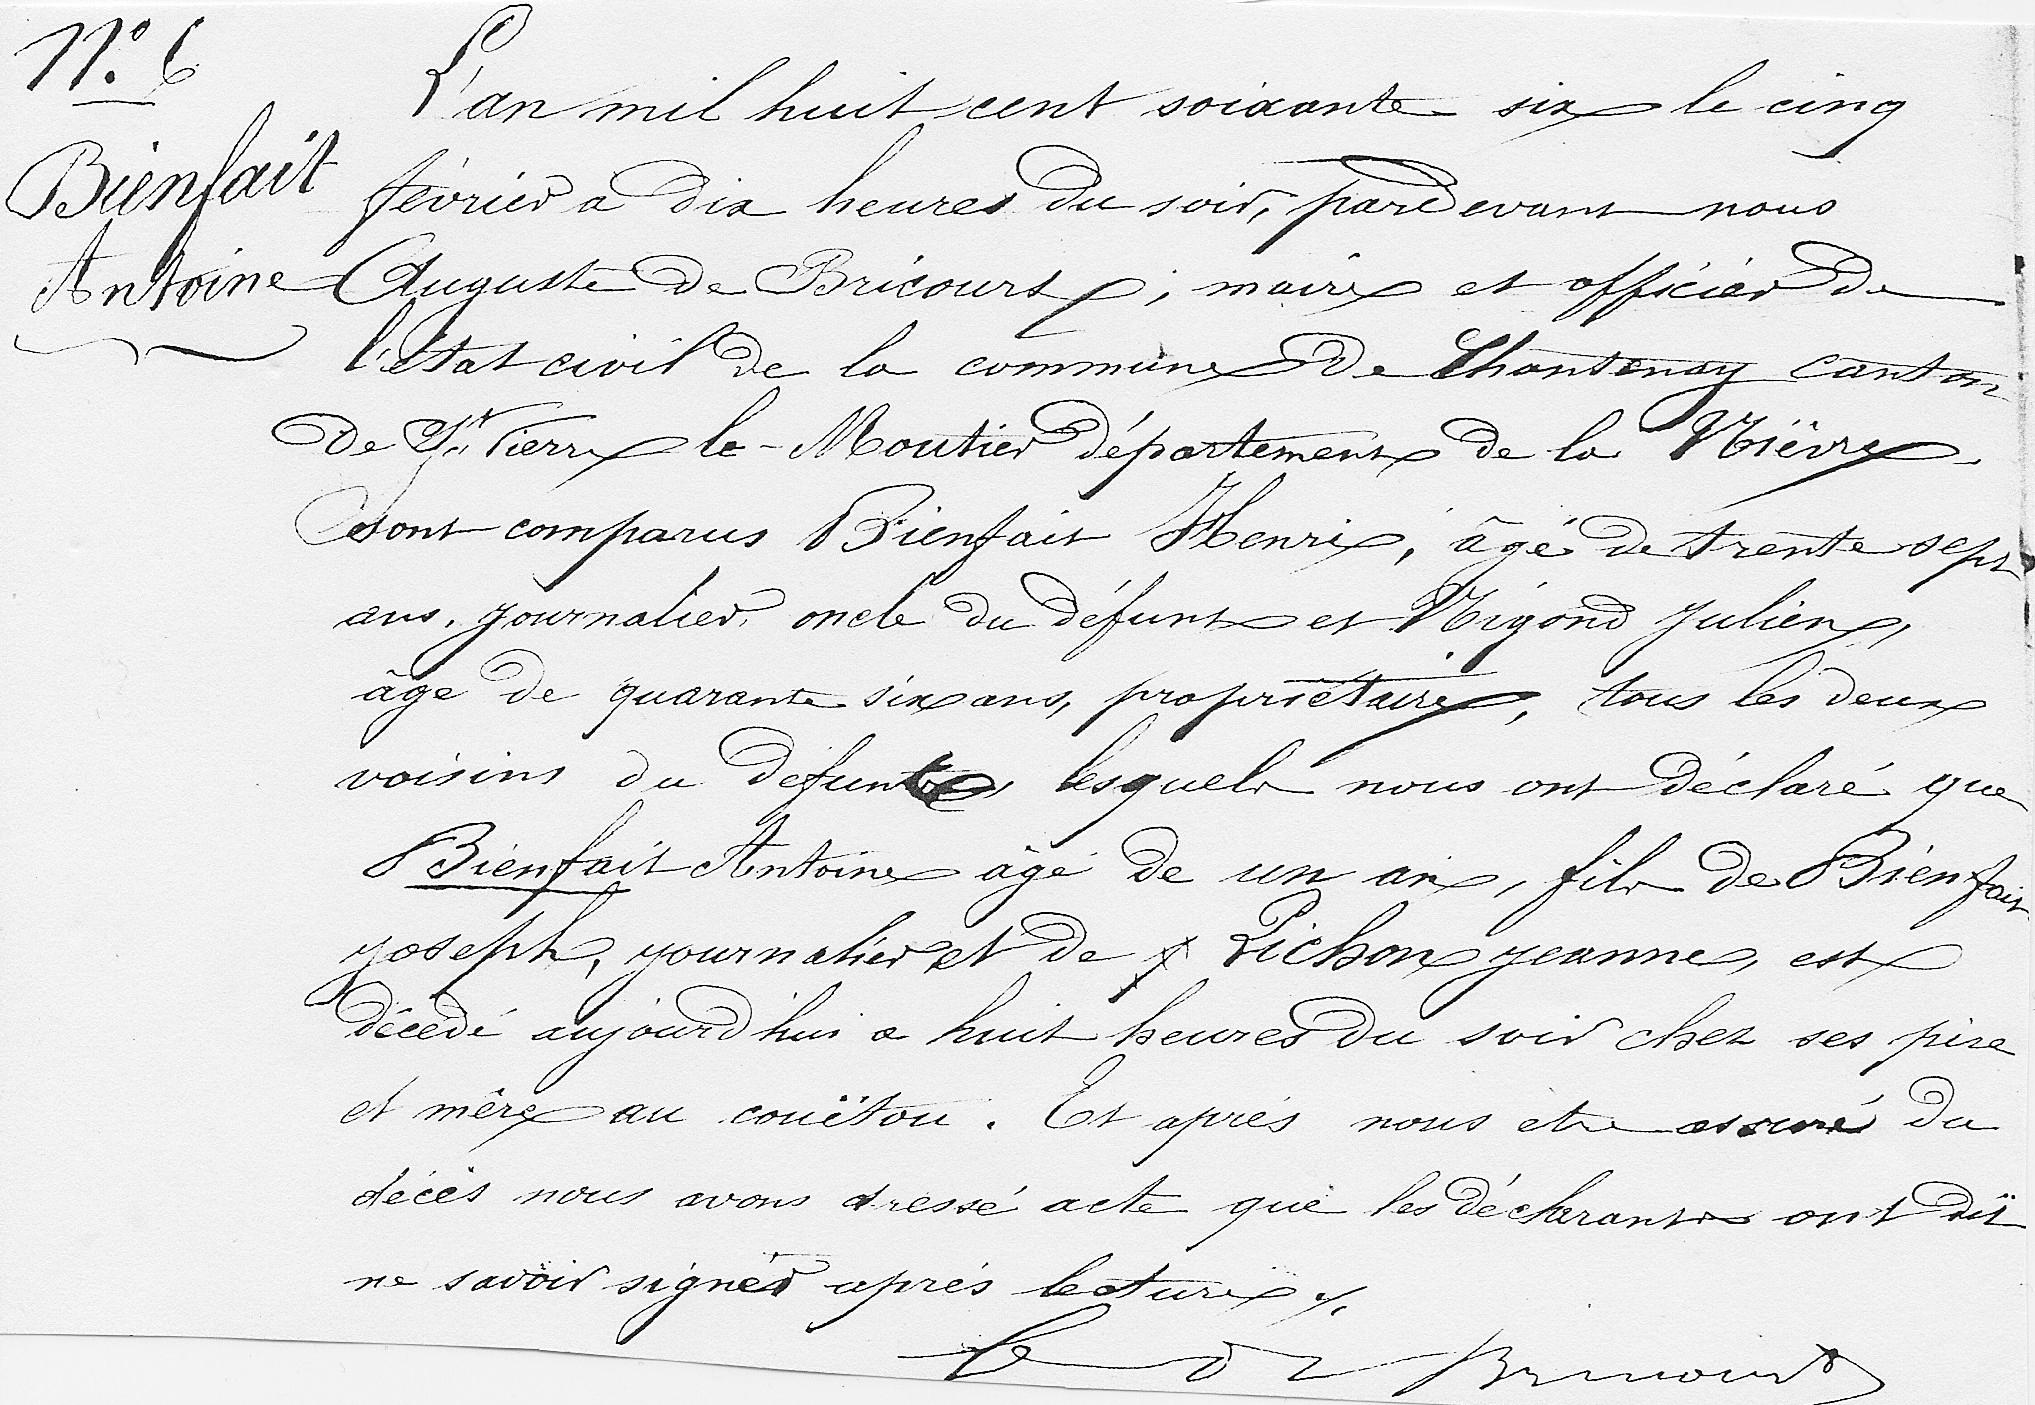 N° 6
Bienfait
Antoine
L'an mil huit cent soixante six le cinq
février a dix heures du soir, pardevant nous
Auguste de Bricourt, maire et officier de
l'état civil de la commune de Chantenay canton
de St Pierre le-Moutier département de la Nièvre
sont comparus Bienfait Henri, âgé de trente sept
ans, journalier, oncle du défunt et Nigond Julien,
âge de quarante six ans, propriétaire, tous les deux
voisins du défunt, lesquels nous ont déclaré que
Bienfait Antoine âgé de un an, fils de Bienfait
Joseph, journalier et de Pichon Jeanne, est
décédé aujourd'hui a huit heures du soir chez ses père
et mère au couëtou. Et après nous être assuré du
décès nous avons dressé acte que les déclarants ont dit
ne savoir signer après lecture.